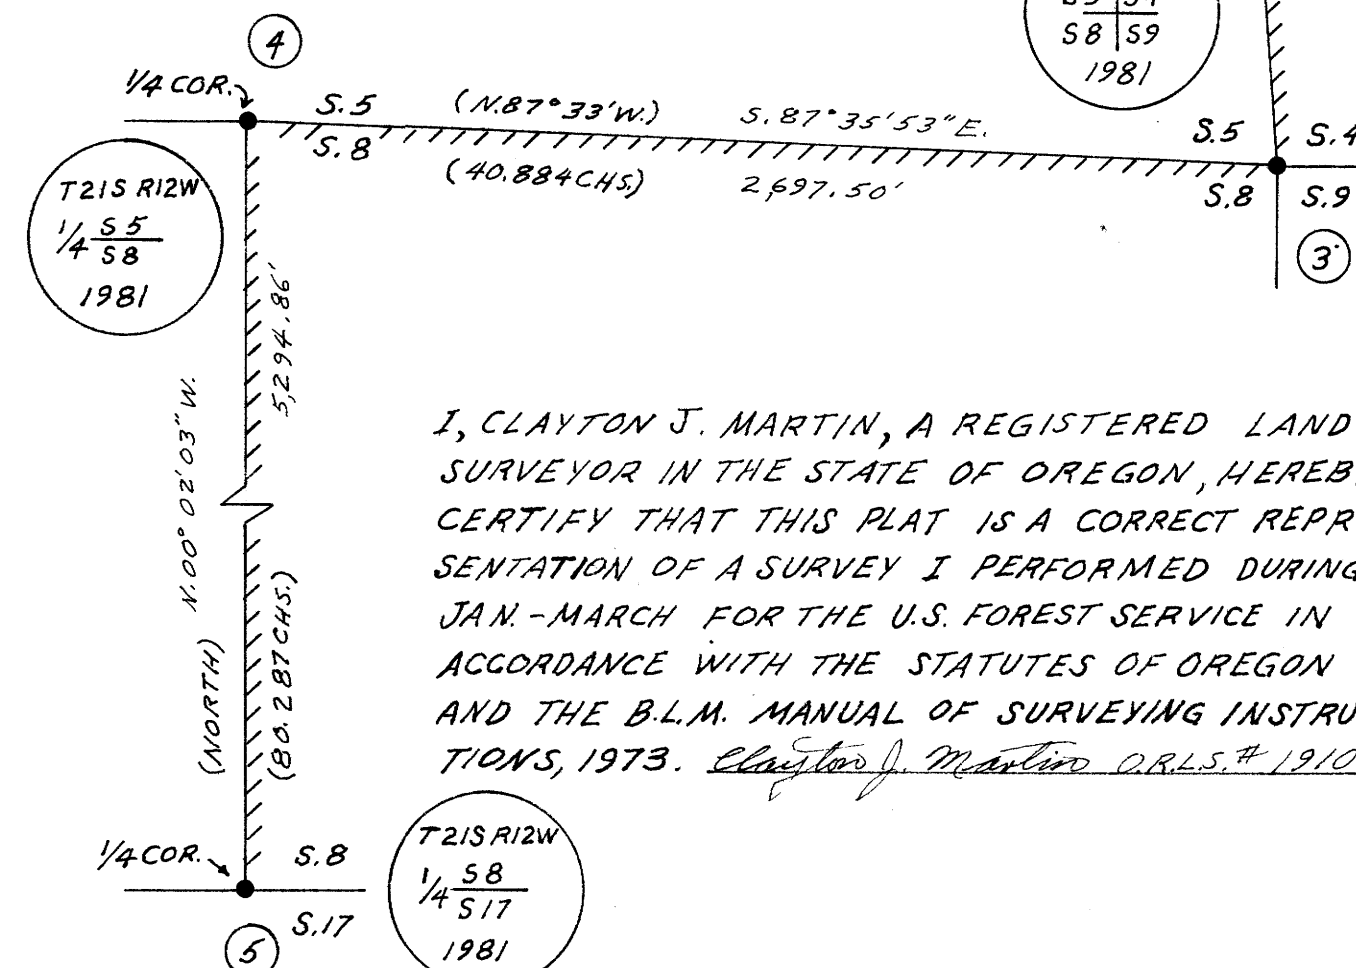 4
1/4 COR.
S.5
(N.87°33'W.)
S.87°35'53"E.
S.8
(40.884CHS.)
2,697.50'
S8 S9
1981
S.5
S.4
S.8
S.9
3
T21S R12W
1/4 S5
S8
1981
5,294.86'
N.00°02'03"W.
(NORTH)
(80.287CHS.)
I, CLAYTON J. MARTIN, A REGISTERED LAND
SURVEYOR IN THE STATE OF OREGON, HEREB
CERTIFY THAT THIS PLAT IS A CORRECT REPR
SENTATION OF A SURVEY I PERFORMED DURING
JAN.-MARCH FOR THE U.S. FOREST SERVICE IN
ACCORDANCE WITH THE STATUTES OF OREGON
AND THE B.L.M. MANUAL OF SURVEYING INSTRU
TIONS, 1973. Clayton J. Martin O.R.L.S.# 1910
1/4 COR.
S.8
S.17
5
T21S R12W
1/4 S8
S17
1981